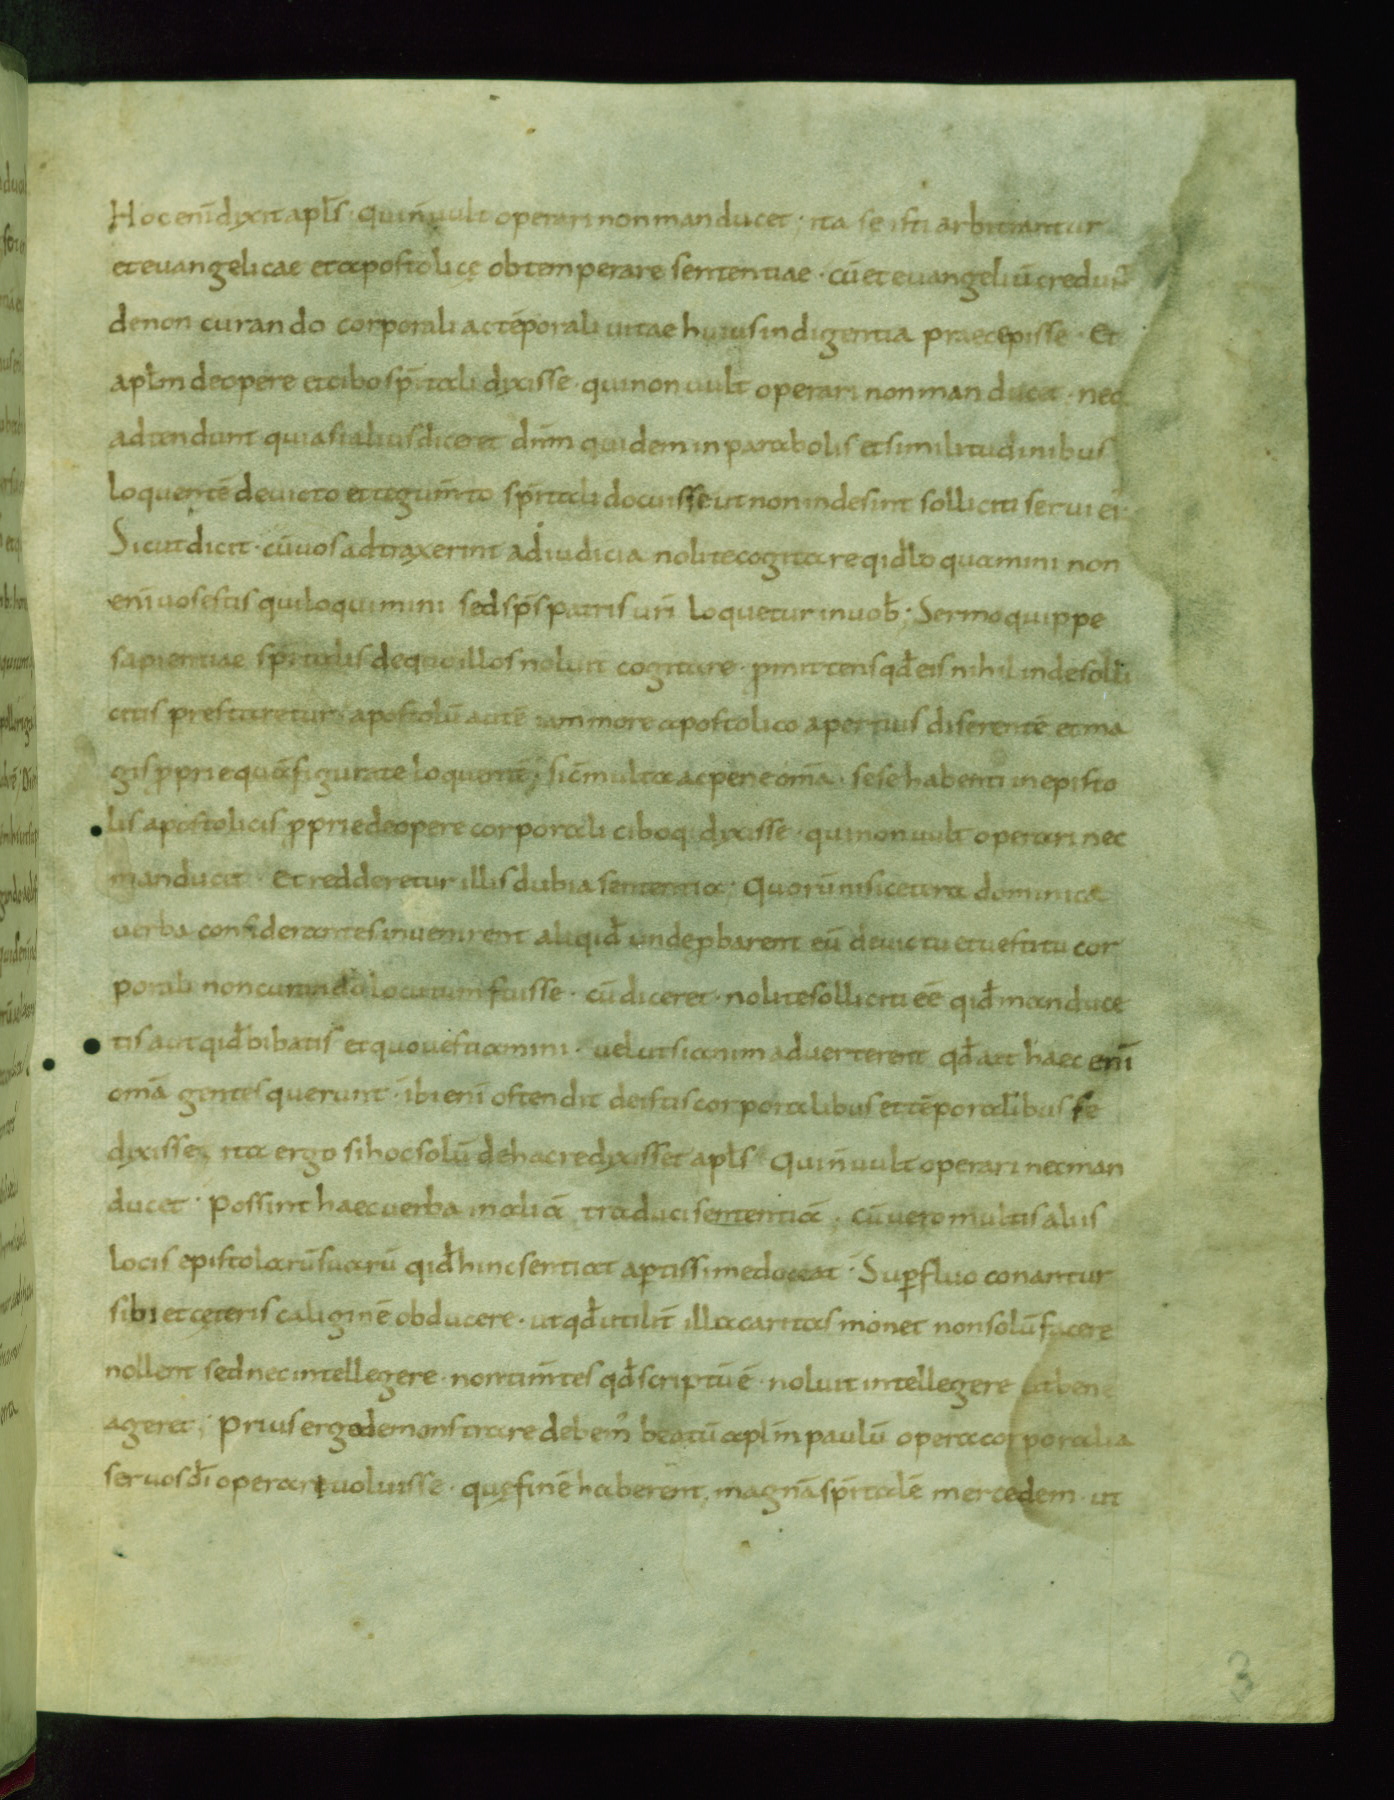 Hoc enī dixit apl̄s · qui n̄ uult operari non manducet · ita se isti arbitrantur
et euangelicae et apostolicę obtemperare sententiae · cū et euangeliū credunt
de non curando corporali ac tēporali uitae huius indigentia praecepisse · Et
apl̄m de opere et cibo sp̄itali dixisse · qui non uult operari non manducet · nec
adtendunt quia si alius diceret dn̄m quidem in parabolis et similitudinibus
loquentē de uicto et tegum̄to sp̄itali docuisse ut non inde sint solliciti serui ei ·
Sicut dicit · cū uos adtraxerint ad iudicia nolite cogitare qid loquamini non
enī uos estis qui loquimini sed sp̄s patris uri loquetur in uob ; Sermo quippe
sapientiae spiritalis de quo illos noluit cogitare · pmittens qd eis nihil inde solli
citis prestaretur ; apostolū autē iam more apostolico apertius diserentē et ma
gis pprie quā figurate loquentē ; sic̄ multa ac pene om̄a · sese habent in episto
lis apostolicis pprie de opere corporali ciboq dixisse · qui non uult operari nec
manducet · Et redderetur illis dubia sententia ; Quorū nisi cetera dominica
uerba considerantes inuenirent aliqid unde pbarent eū de uictu et uestitu cor
porali non curando locutum fuisse · cū diceret · nolite solliciti eē qid manduce
tis aut qid bibatis et quo uestiamini · uelut si animaduerterent qd ait haec enī
om̄a gentes querunt · ibi enī ostendit de istis corporalibus et tēporalibus se
dixisse ; ita ergo si hoc solū de hac re dixisset apl̄s Qui n̄ uult operari nec man
ducet · Possint haec uerba in aliā traduci sententiā · cū uero multis aliis
locis epistolarū suarū qid hinc sentiat aptissime doceat · Supfluo conantur
sibi et cęteris caliginē obducere · ut qd utilit̄ illa caritas monet non solū facere
nollent sed nec intellegere · non tim̄tes qd scriptū ē · noluit intellegere ut bene
ageret ; Prius ergo demonstrare debem' beatū apl̄m paulū opera corporalia
seruos dī operari uoluisse · quę finē haberent magnā sp̄italē mercedem · ut
3